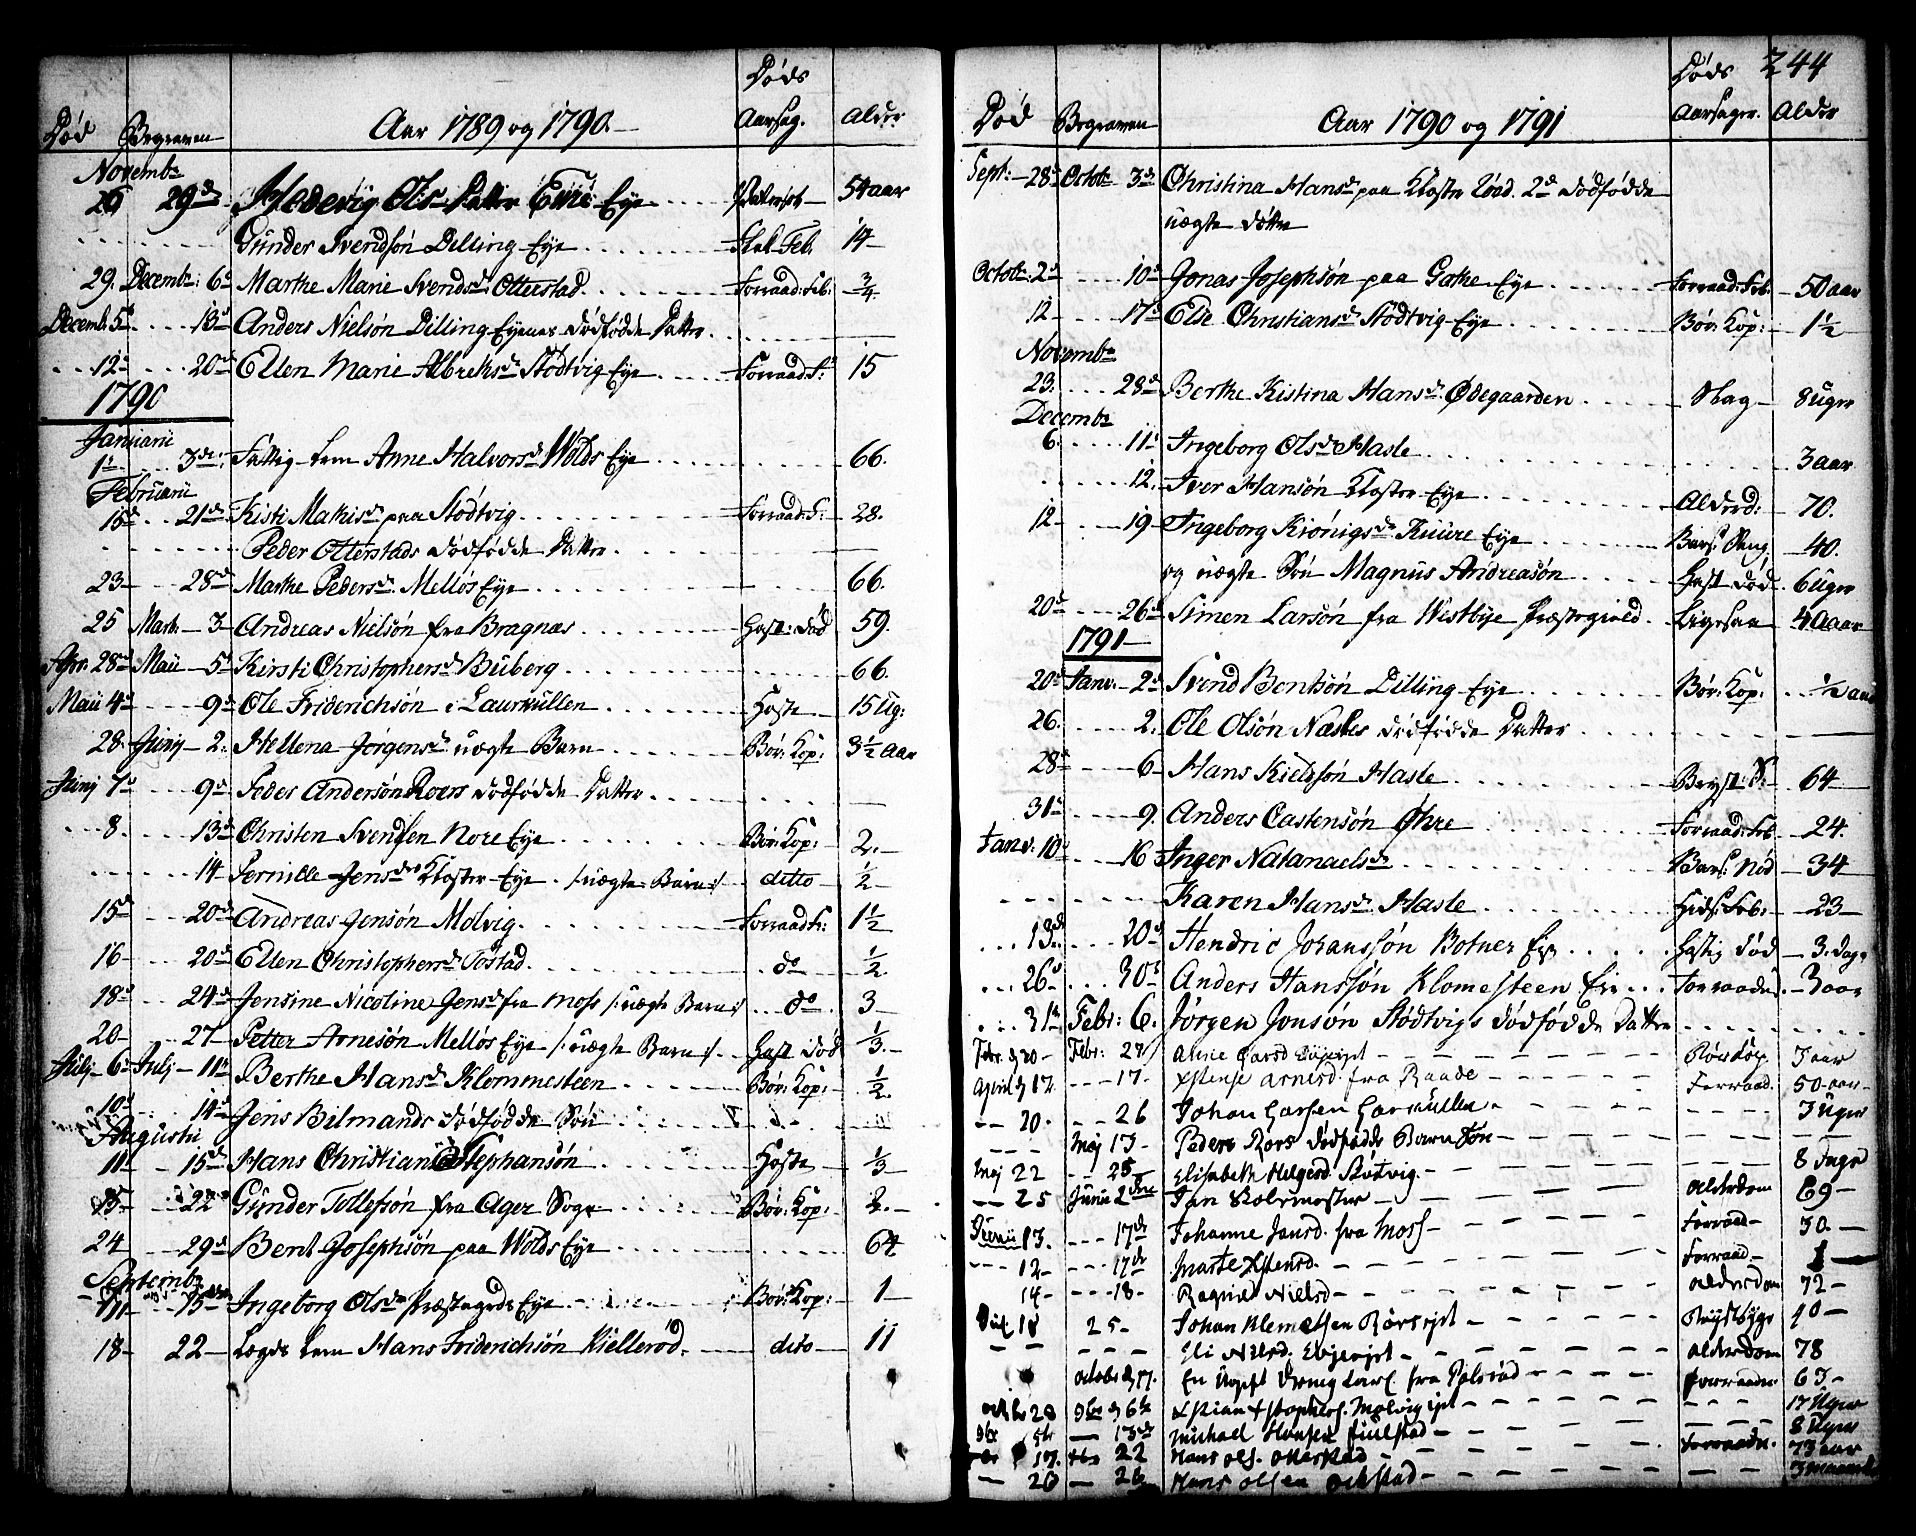 Død Begraven Aar 1789 og 1790. Døds Aarsag. Alder
Novembr
26 29de Hedevig Ols Datter Eye 54 aar
Gunder Svendsön Dilling Eye Skal. Feb. 14
29. Decembr: 6te Marthe Marie Svendsd. Otterstad Forraad: Feb: 3/4
Decemb: 5 13de Anders Nielsön Dilling Eyenes dødfødde Datter
12 20de Ellen Marie Albrektsd. Stödtvig Eye Forraad: F: 15
1790
Januarii
1 3de Fattig-Lem Anne Halvorsd. Wolds Eye 66.
Februarii
16d 21de Kisti Mathisd. paa Stödtvig Forraad: F: 28.
Peder Otterstads dødfødde Datter
23 28de Marthe Pedersd. Mellös Eye 66.
25 Marti 3 Andreas Nielsön fra Bragnæs Hast: Død 59.
Apr. 28de Maii 5 Kirsti Christophersd. Buberg 66.
Maii 4 9de Ole Friderichsön i Laurkullen Hoste 15 Ug:
28. Junij 2. Hellena Jörgensd. uægte Barn Bör: Kop: 3½ Aar
Junij 7 9de Peder Andersön Roers dødfødde Datter
8. 13de Christen Svendsen Nore Eye Bör: Kop: 2.
14 Pernille Jensd. Kloster Eye /: uægte Barn :/ ditto ½
15de 20de Andreas Jensön Molvig. Forraad F: 1½
16 20de Ellen Christophersd. Tostad. do ½
18de 24de Jensine Nicoline Jensd. fra Moss /: uægte Barn :/ do 3
20 27 Petter Arnesön Mellös Eye /: uægte Barn :/ Hast Død ⅓
Julj 6 Julj 11te Berthe Hansd. Klommesteen Bör: Kop: ½
10de 14de Jens Bilmands dødfødde Sön
Augusti
11 15de Hans Christian Stephansön Hoste ⅓
15 22 Gunder Tollefsön fra Ager Sogn Bör: Kop: 2.
24 29de Bent Josephsön paa Wolds Eye 64
Septembr
11 15de Ingeborg Olsd. Præstegrds Eye Bör: Kop: 1
18 22 Lægds Lem Hans Friderichsön Kiellerød. dito 11
244
Død Begraven Aar 1790 og 1791 Døds Aarsager. Alder
Sept: 28 Octobr 3de Christina Hansd. paa Kloster 2de dødfødde
uægte døttre
Octobr: 2de 10de Jonas Josephsön paa Gothe Eye Forraad: Feb. 50 aar
12 17de Else Christiansd. Stödtvig Eye Bör: Kop: 1½
Novembr
23. 28de Berthe Kistina Hansd. Ødegaarden Slag 8 Uger
Decembr
6. 11 Ingeborg Olsd. Hasle 3 aar
12. Iver Hansön Kloster Eye Alderd: 70.
12 19 Ingeborg Krönigsd. Eye Bars: Seng 40.
og uægte Sön Magnus Andreasön Hast Død 6 Uger
20de 26de Simen Larsön fra Westbye Præstegield. Ligesaa 40 aar
1791
20de Janv. 2de Svend Bentsön Dilling Eye Bör: Kop: ½ aar
26. 2. Ole Olsön Næsles dødfødde Datter
28de 6 Hans Kieldsön Hasle Bryst: S: 64
31te 9. Anders Castensön Øhre Forraad: Feb. 24.
Janv. 10 16 Inger Natanaelsd. Bars: Nød 34
Karen Hansd. Hasle Hids: Feb: 23
13de 20de Hendric Johanssön Botner Eye Hastig Død 3. Dage
26de 30te Anders Hanssön Klomesteen Eie Forraadn. 3 aar
31te Febr: 6. Jörgen Jonsön Stödtvigs dødfødde Datter
Febr. d. 20 Febr: 27 Anne Larsd. 3 aar
April d. 12 17. Xstense Arnesd. fra Raade Forraad. 50. aar
20. 26 Johan Larsen Larkullen 3 Uger
Maj 13 Peders Rörs dødfødde Barn Sön
Maj 22 25 Elisabeth Helgesd. Stötvig. 8 Dage
25 Junii 2den Jan Alderdom 69
Junii 13. 17de Johanne Jansd. fra Moss Forraad 30
12 17de Marte Xstensd. Forraad 1
14 18. Ragnil Nielsd Alderdom 72
18 25 Johan Klemetsen Rörs ejet Brystsyge 40
Eli Nilsd. Alderdom 78
octobr d. 17. En fra Forraadn. 63
octbr 28 9br d. 6te Xstian Xstophers. Molvig ejet 17 Uger
9br 5te 13de Michael Hansen Fuelstad 8 Uger
17. 22 Hans Ols. Otterstad Forraadn. 73 aar
20 26 Hans Olsen Ørkstad 3 Maaneder